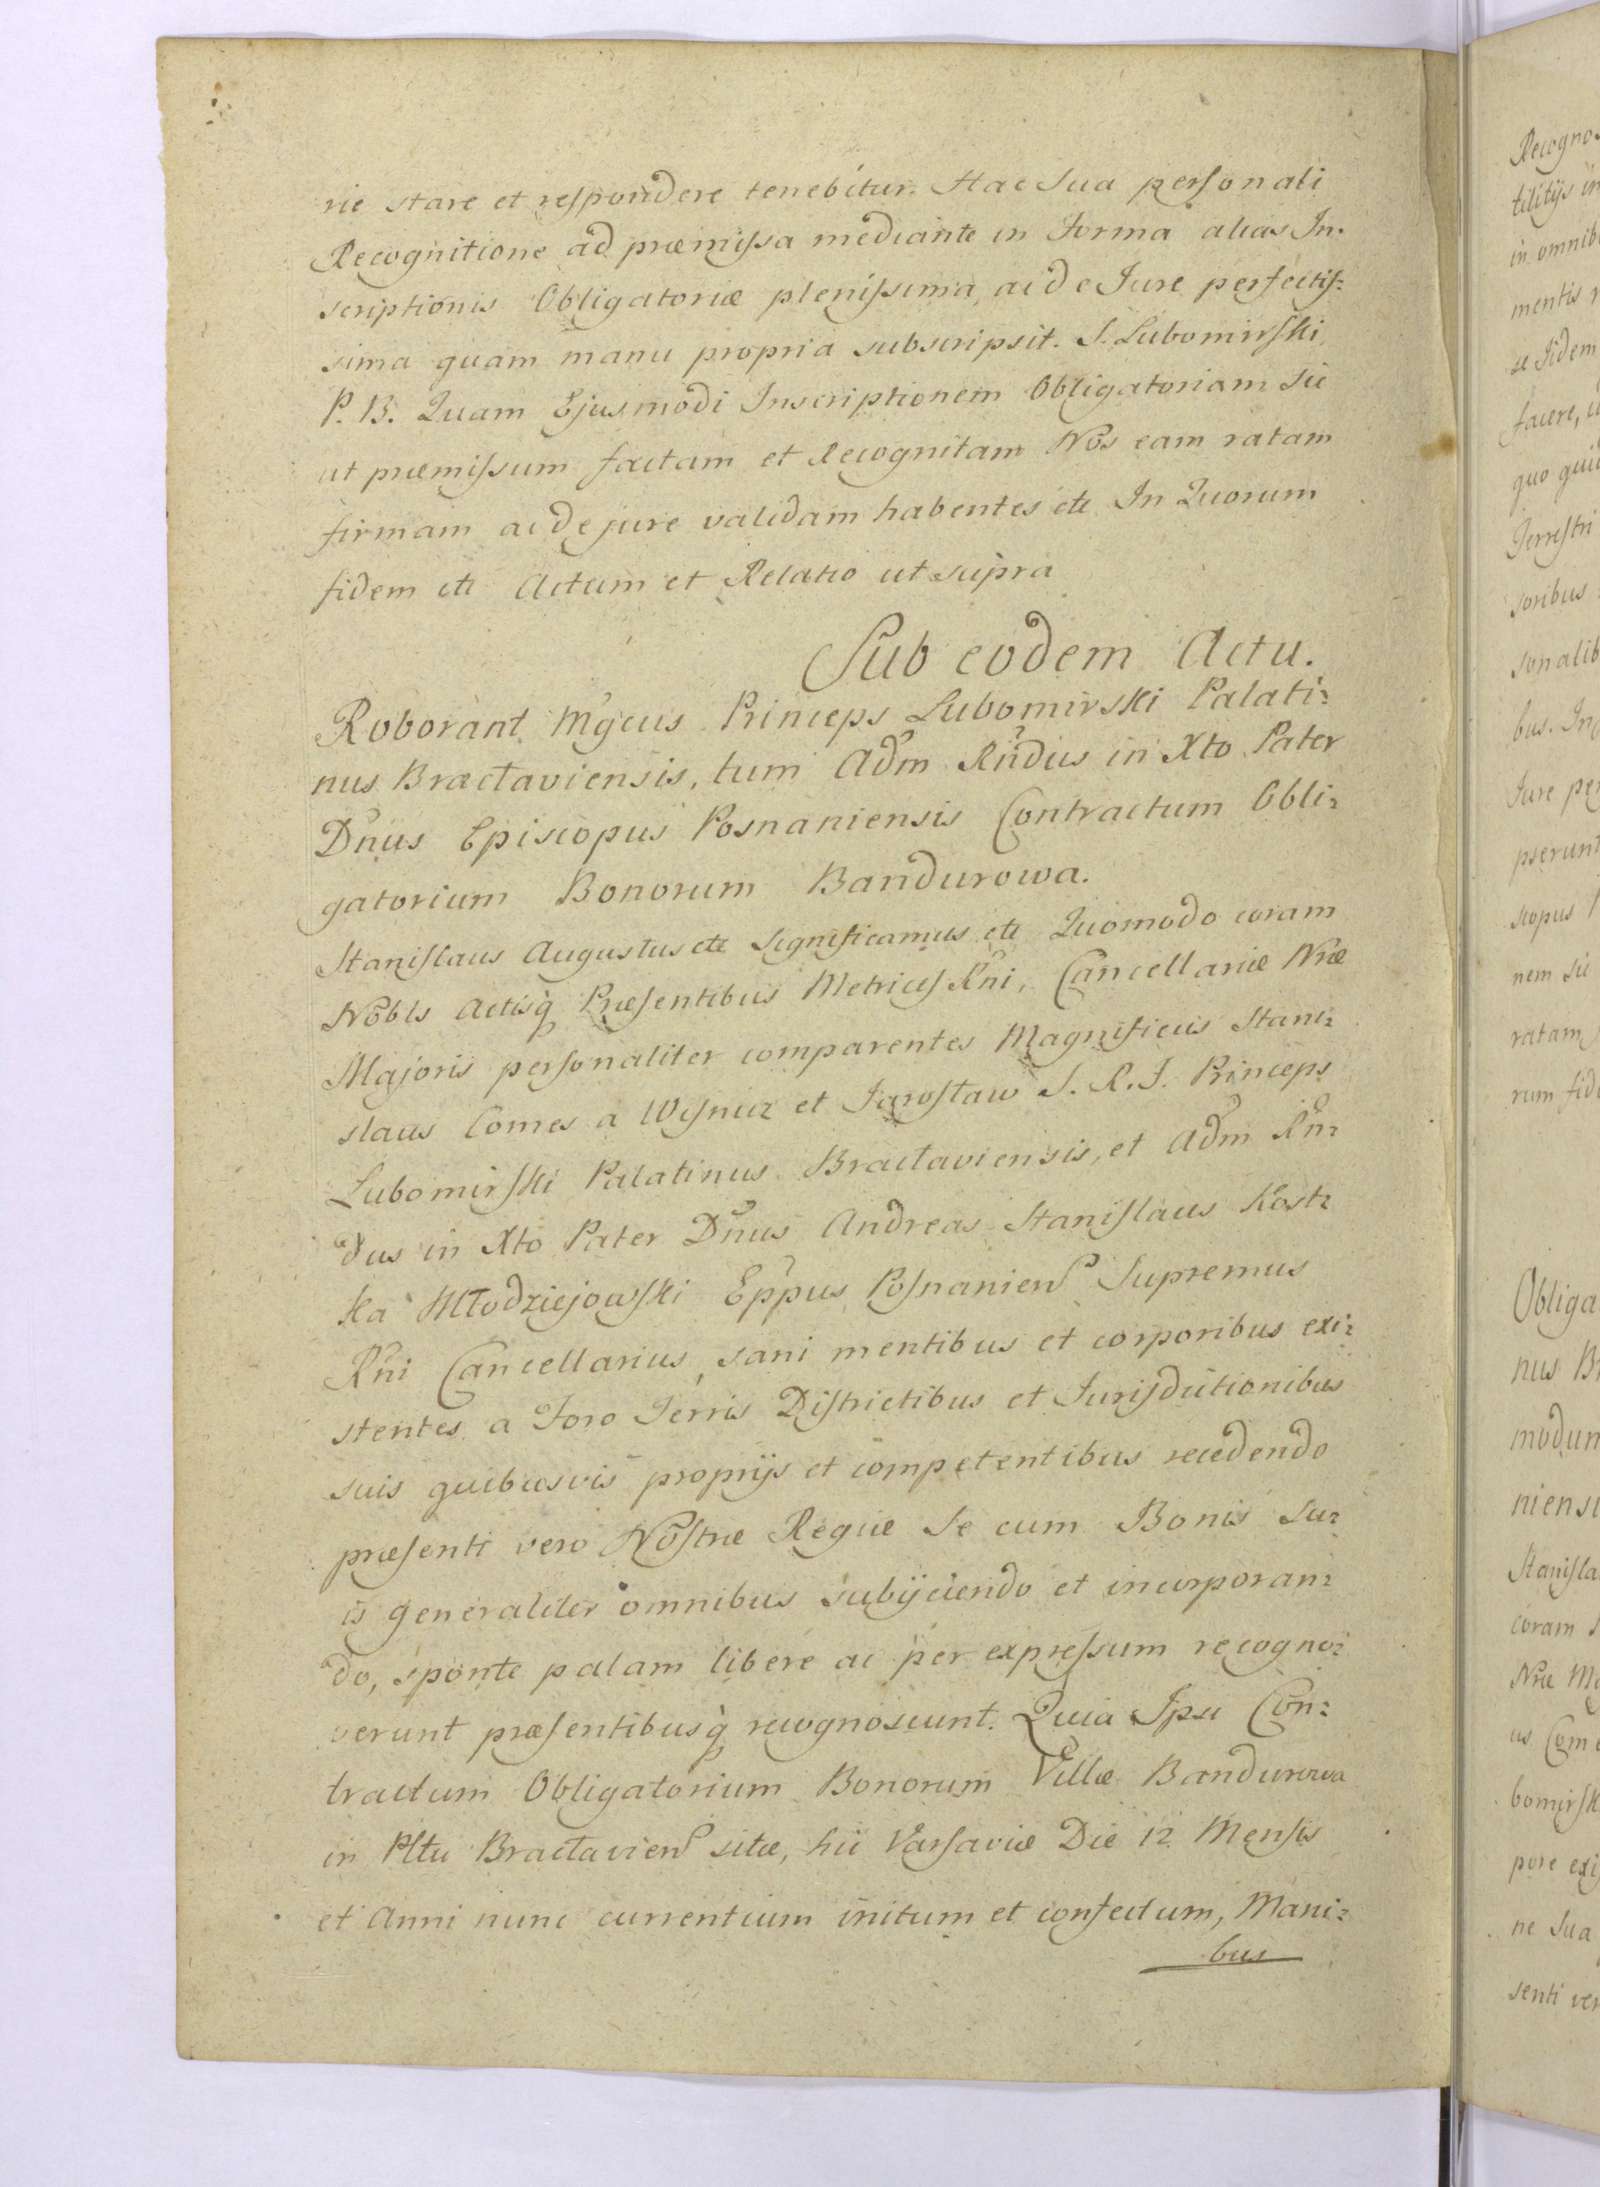 rie stare et respondere tenebitur. Hac Sua personali
Recognitione ad præmissa mediante in Forma alias In-
scriptionis Obligatoriæ plenissima, ac de Jure perfectis-
sima quam manu propria subscripsit. S. Lubomirski
P. B. Quam Ejusmodi Inscriptionem Obligatoriam Sic
ut præmissum factam et Recognitam Nos eam ratam
firmam ac de jure validam habentes etc In Quorum
fidem etc Actum et Relatio ut supra
Sub eodem Actu.
Roborant Mgcus Princeps Lubomirski Palati-
nus Bractaviensis, tum Adm Rndus in Xto Pater
Dnus Episcopus Posnaniensis Contractum Obli-
gatorium Bonorum Bandurowa.
Stanislaus Augustus etc Significamus etc Quomodo coram
Nobis Actisq Præsentibus Metrices Rni, Cancellariæ Nræ
Majoris personaliter comparentes Magnificus Stani-
slaus Comes a Wisnicz et Jarosław S. R. I. Princeps
Lubomirski Palatinus Bractaviensis, et Adm Rn-
dus in Xto Pater Dnus Andreas Stanislaus Kost-
ka Młodziejowski Eppus Posnanien Supremus
Rni Cancellarius, sani mentibus et corporibus exi-
stentes a Foro Terris Districtibus et Jurisdictionibus
suis quibusvis proprijs et competentibus recedendo
præsenti vero Nostræ Regiæ Se cum Bonis Su-
is generaliter omnibus subijciendo et incorporan-
do, sponte palam libere ac per expressum recogno-
verunt præsentibusq recognoscunt. Quia Ipsi Con-
tractum Obligatorium Bonorum Villæ Bandurowa
in Pltu Bractavien sitæ, hic Varsaviæ Die 12 Mensis
et Anni nunc currentium initum et confectum, Mani-
bus
Recogno
tilitijs in
in omnib
mentis
se Fidem
facere,
quo qui
Terrestri
soribus
sonalib
bus. In
Jure per
pserunt
scopus
nem sic
ratam
rum fid
Obliga
nus Br
modum
niensi
Stanisla
coram
Nræ Ma
us Com
bomirsk
pore exi
ne Sua
senti ver